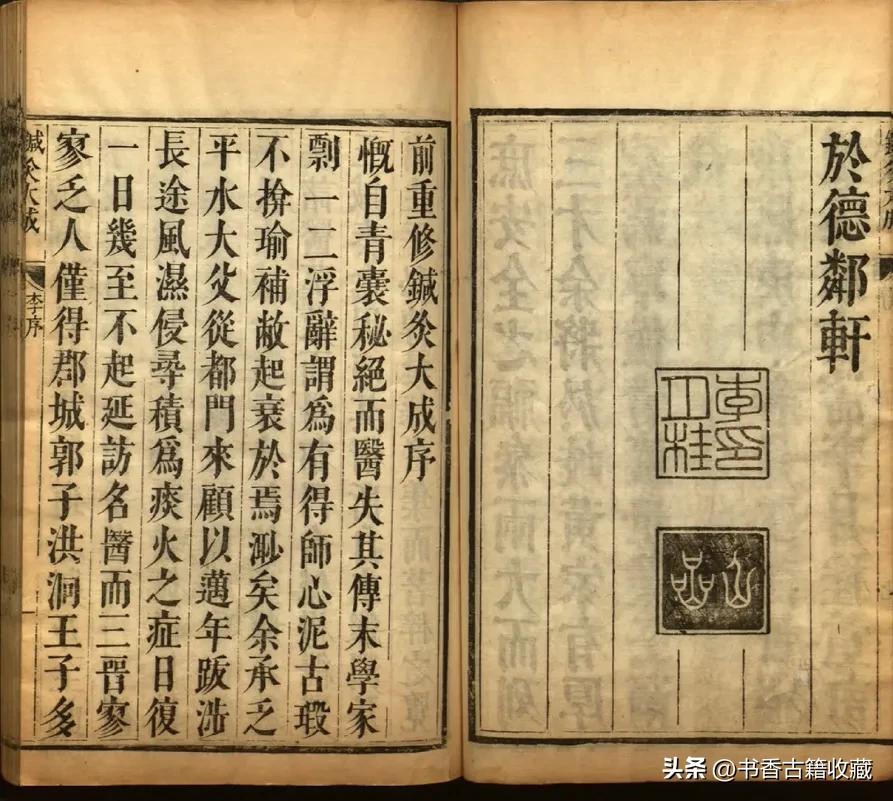 於德鄰軒
李印月桂
前重修鍼灸大成序
慨自青囊秘絕而醫失其傳末學家
剽一二浮辭謂爲有得師心泥古瑕
不揜瑜補敝起衰於焉渺矣余承乏
平水大父從都門來顧以邁年跋涉
長途風濕侵尋積爲痰火之症日復
一日幾至不起延訪名醫而三晉寥
寥乏人僅得郡城郭子洪洞王子多
鍼灸大成
李序
头条 @书香古籍收藏